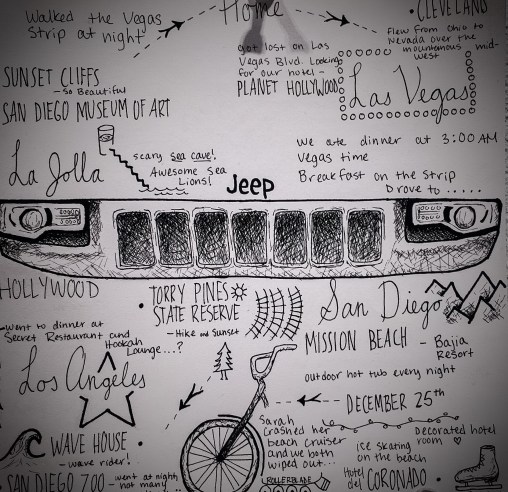 Walked the Vegas
Strip at night
Home
CLEVELAND
flew from Ohio to
Nevada over the
mountainous mid-
west
got lost on Las
Vegas Blvd. Looking
for our hotel -
PLANET HOLLYWOOD
Las Vegas
SUNSET CLIFFS
- so Beautiful
SAN DIEGO MUSEUM OF ART
La Jolla
scary sea cave!
Awesome Sea
Lions!
we ate dinner at 3:00 AM
Vegas time
Breakfast on the Strip
Drove to .....
Jeep
HOLLYWOOD
- went to dinner at
Secret Restaurant and
Hookah
Lounge...?
Los Angeles
TORRY PINES
STATE RESERVE
- Hike and Sunset
San Diego
MISSION BEACH - Bajia
Resort
outdoor hot tub every night
DECEMBER 25th
Sarah
crashed her
beach cruiser
and we both
wiped out...
decorated hotel
room
ice skating
on the beach
Hotel
del CORONADO
WAVE HOUSE
- wave rider!
SAN DIEGO ZOO - went at night
not many
ROLLERBLADE